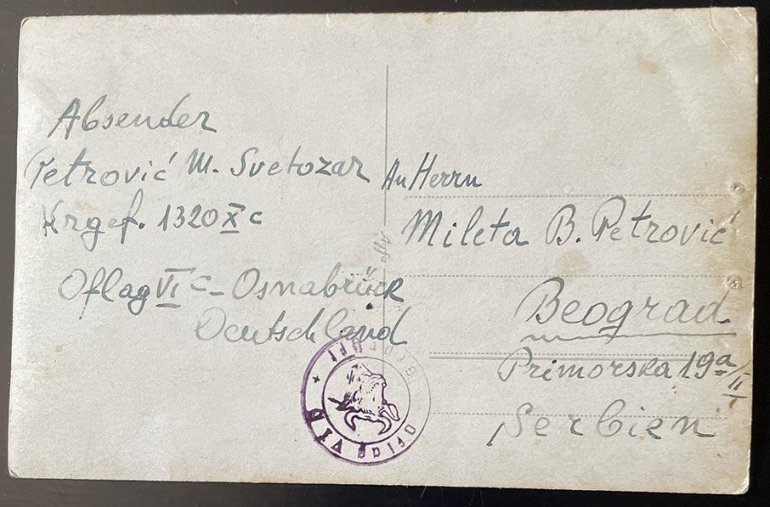 Absender
Petrović M. Svetozar
Krgef. 1320 X c
Oflag VI C - Osnabrück
Deutschland
An Herrn
Mileta B. Petrović
Beograd
Primorska 19a/II
Serbien
Agfa
Oflag VI